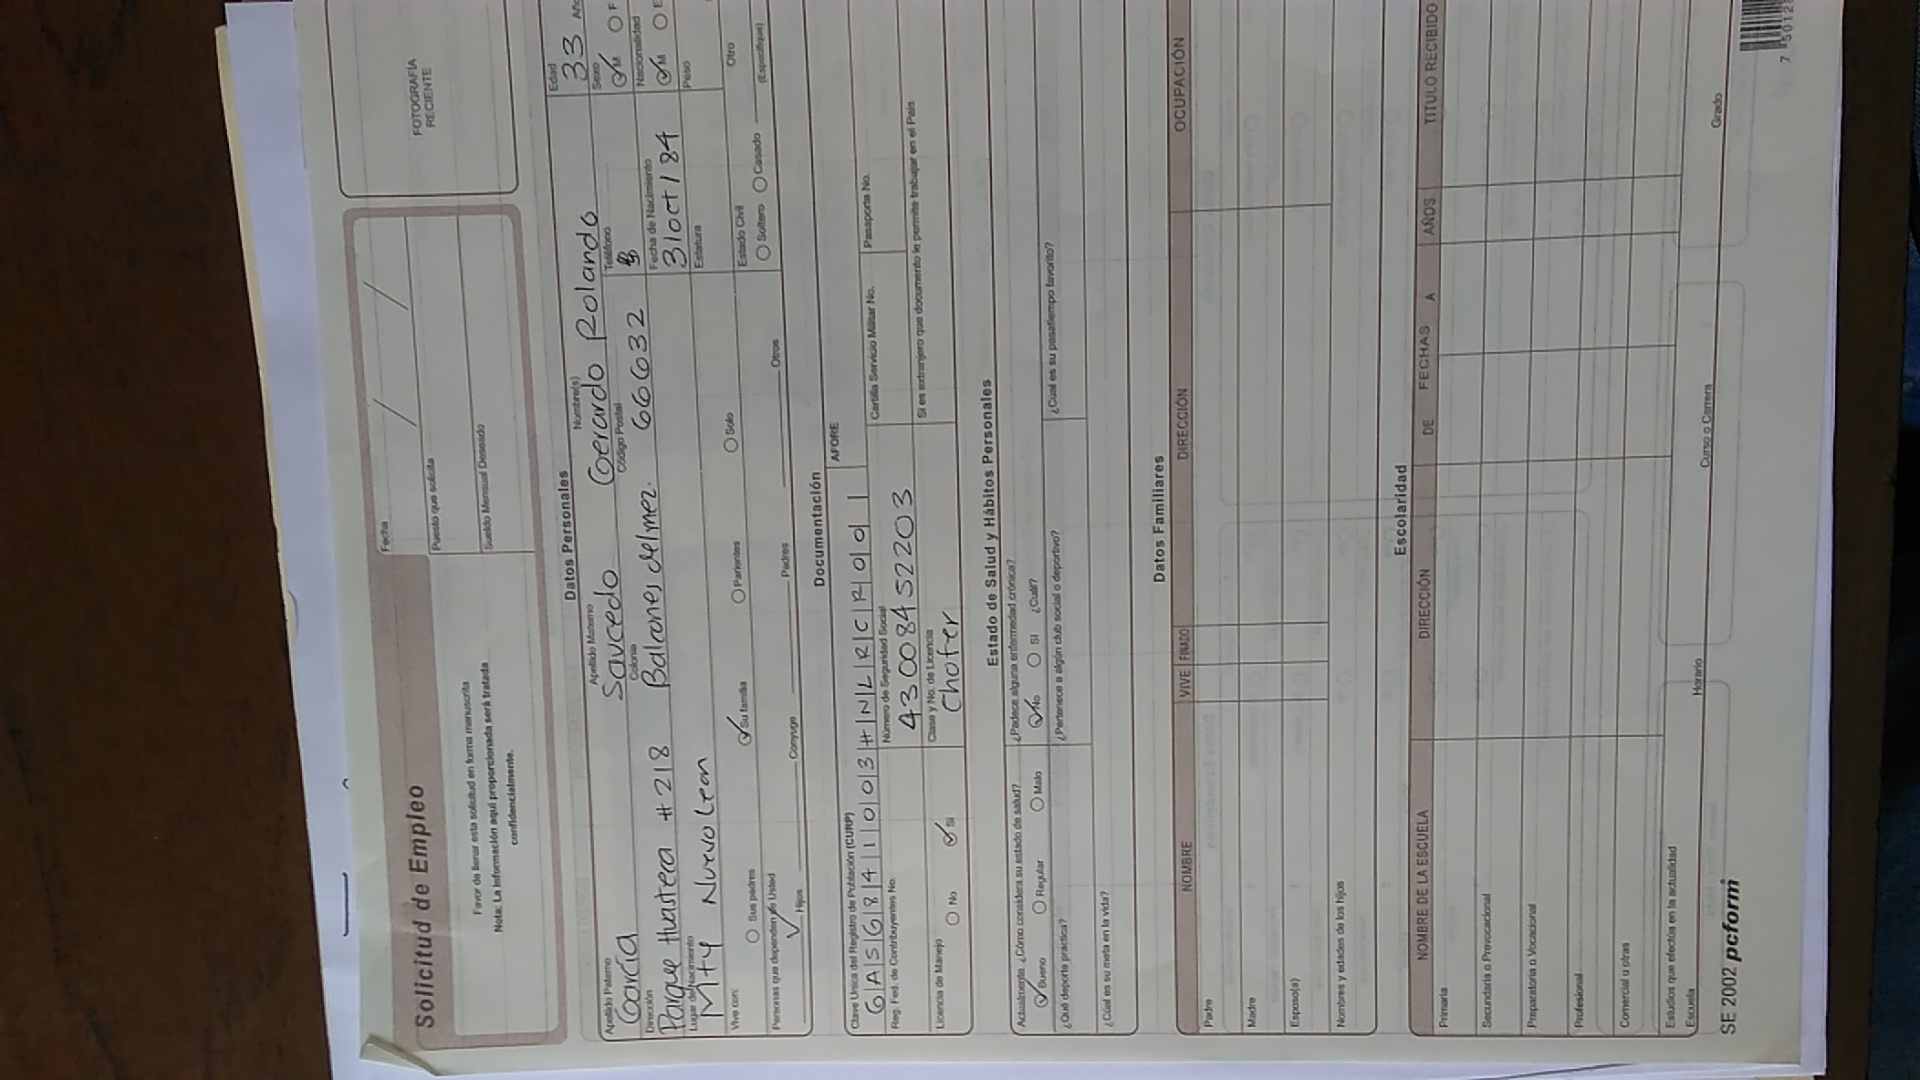 Solicitud de Empleo
Favor de llenar esta solicitud en forma manuscrita
Nota: La información aquí proporcionada será tratada
confidencialmente.
Fecha / /
Puesto que solicita
Sueldo Mensual Deseado
FOTOGRAFÍA
RECIENTE
Datos Personales
Apellido Paterno Apellido Materno Nombre(s) Edad
García Saucedo Gerardo Rolando 33 Año
Dirección Colonia Código Postal Teléfono Sexo
Parque Huasteca # 218 Balcones del mez. 66632 M F
Lugar de Nacimiento Fecha de Nacimiento Nacionalidad
Mty Nuevo Leon 31 oct 184 M E
Estatura Peso
Vive con: Sus padres Su familia Parientes Solo
Estado Civil
Soltero Casado Otro
(Especifique)
Personas que dependen de Usted
Hijos Conyuge Padres Otros
Documentación
Clave Unica del Registro de Población (CURP) AFORE
G A S G 8 4 1 0 0 3 H N L R C R 0 0 1
Reg. Fed. de Contribuyentes No. Número de Seguridad Social Cartilla Servicio Militar No. Pasaporte No.
43008452203
Licencia de Manejo Clase y No. de Licencia Si es extranjero que documento le permite trabajar en el País
No Si Chofer
Estado de Salud y Hábitos Personales
Actualmente ¿Cómo considera su estado de salud? ¿Padece alguna enfermedad crónica?
Bueno Regular Malo No Si ¿Cuál?
¿Qué deporte practica? ¿Pertenece a algún club social o deportivo? ¿Cúal es su pasatiempo favorito?
¿Cúal es su meta en la vida?
Datos Familiares
NOMBRE VIVE FINADO DIRECCIÓN OCUPACIÓN
Padre
Madre
Esposo(a)
Nombres y edades de los hijos
Escolaridad
NOMBRE DE LA ESCUELA DIRECCIÓN DE FECHAS A AÑOS TITULO RECIBIDO
Primaria
Secundaria o Prevocacional
Preparatoria o Vocacional
Profesional
Comercial u otras
Estudios que efectúa en la actualidad
Escuela Horario Curso o Carrera Grado
SE 2002 pcform
7 5012